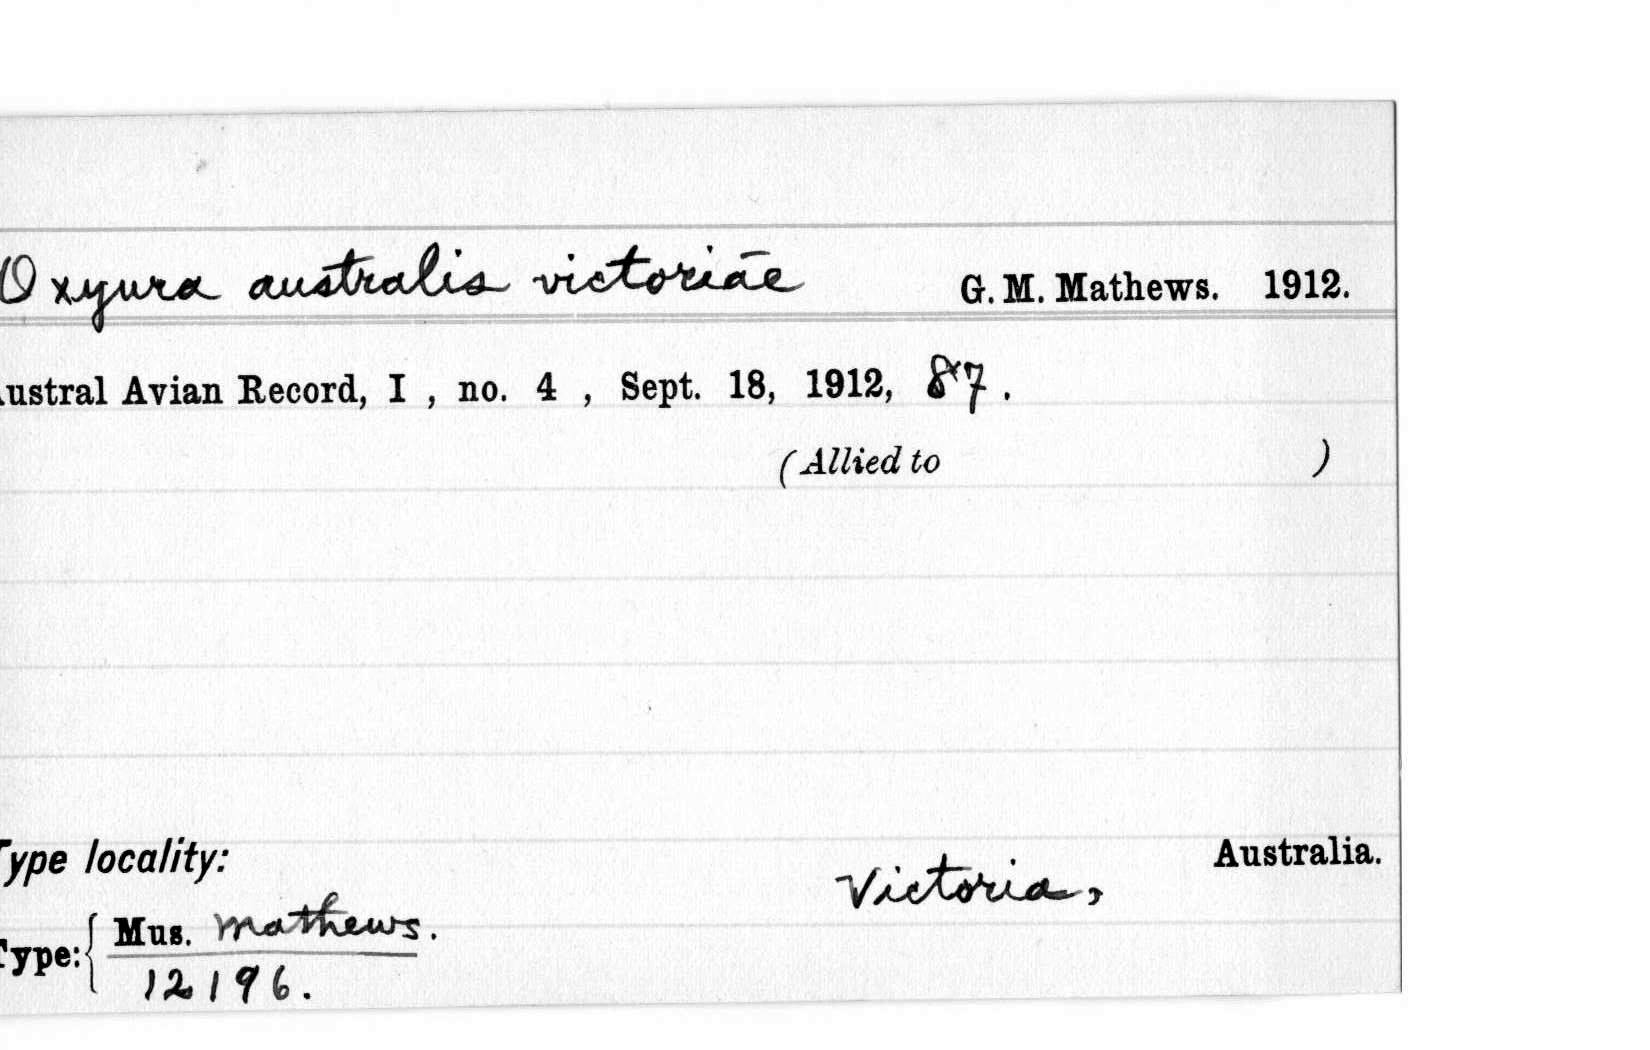 Oxyura australis victoriae G. M. Mathews. 1912.
ustral Avian Record, I , no. 4 , Sept. 18, 1912, 87.
(Allied to )
Type locality: Victoria, Australia.
Type: { Mus. Mathews.
12196.